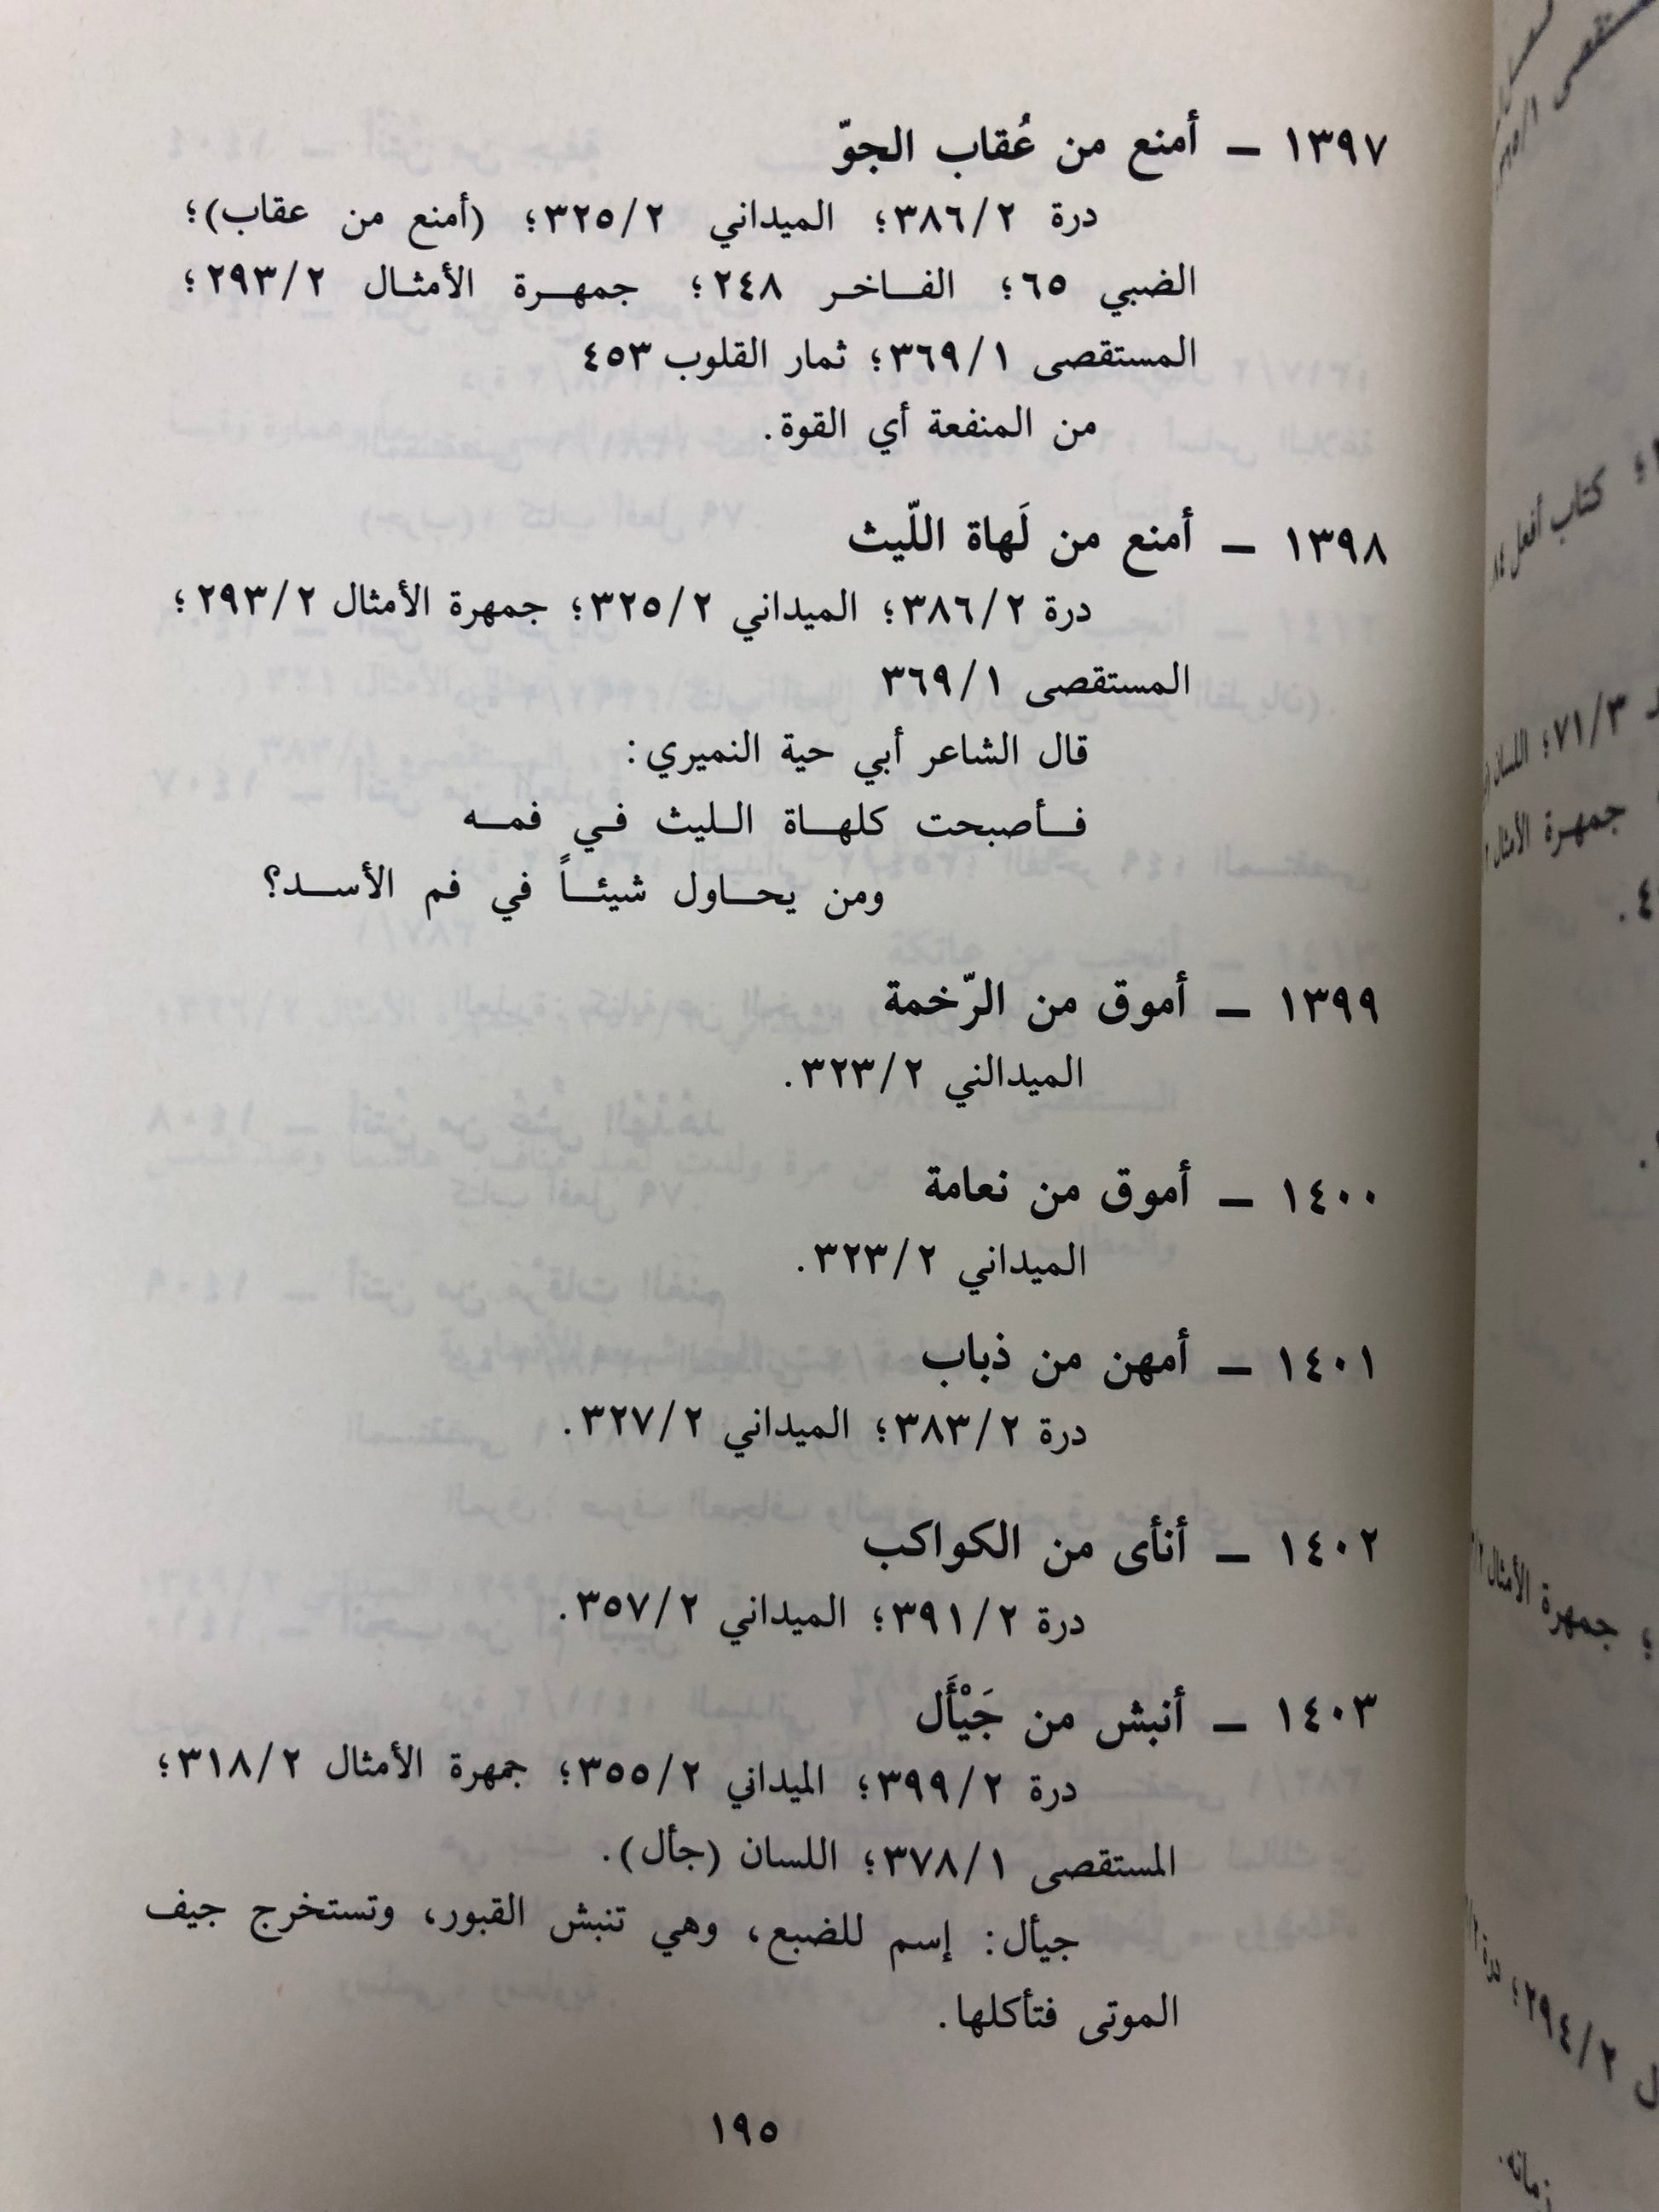 ١٣٩٧ ــ أمنع من عُقاب الجوّ
درة ٣٨٦/٢؛ الميداني ٣٢٥/٢؛ (أمنع من عقاب)؛
الضبي ٦٥؛ الفاخر ٢٤٨؛ جمهرة الأمثال ٢٩٣/٢؛
المستقصى ٣٦٩/١؛ ثمار القلوب ٤٥٣
من المنفعة أي القوة.
١٣٩٨ ــ أمنع من لَهاة اللّيث
درة ٣٨٦/٢؛ الميداني ٣٢٥/٢؛ جمهرة الأمثال ٢٩٣/٢؛
المستقصى ٣٦٩/١
قال الشاعر أبي حية النميري:
فأصبحت كلهاة الليث في فمه
ومن يحاول شيئاً في فم الأسد؟
١٣٩٩ ــ أموق من الرّخمة
الميدالني ٣٢٣/٢.
١٤٠٠ ــ أموق من نعامة
الميداني ٣٢٣/٢.
١٤٠١ ــ أمهن من ذباب
درة ٣٨٣/٢؛ الميداني ٣٢٧/٢.
١٤٠٢ ــ أنأى من الكواكب
درة ٣٩١/٢؛ الميداني ٣٥٧/٢.
١٤٠٣ ــ أنبش من جَيْأَل
درة ٣٩٩/٢؛ الميداني ٣٥٥/٢؛ جمهرة الأمثال ٣١٨/٢؛
المستقصى ٣٧٨/١؛ اللسان (جأل).
جيأل: إسم للضبع، وهي تنبش القبور، وتستخرج جيف
الموتى فتأكلها.
١٩٥